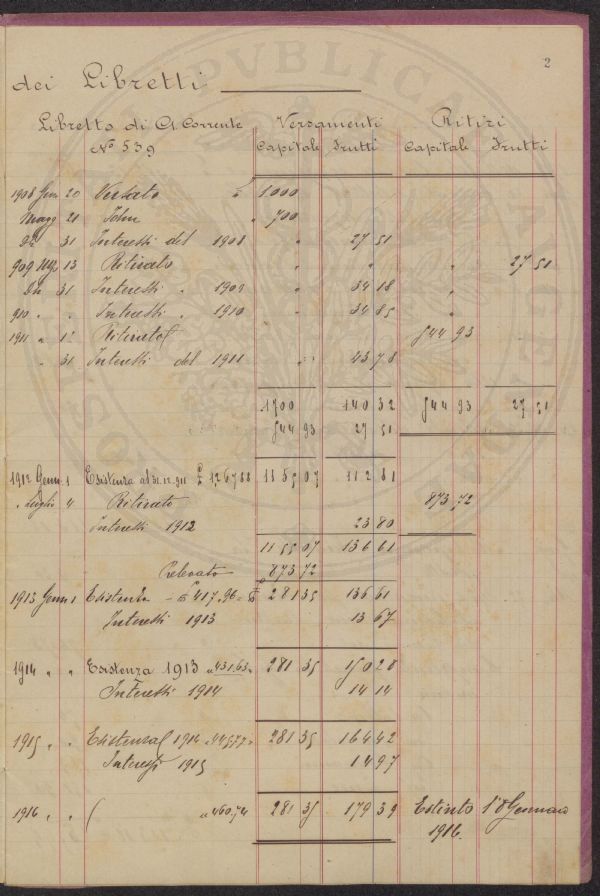 2
dei Libretti
Libretto di C/ Corrente Versamenti Ritizi
Nº 539 Capitale Frutti Capitale Frutti
1908 Gen 20 Versato £ 1000
Magg 21 John " 700
Dic 31 Interessi del 1908 " 27 51
909 13 Ritirato " " " 27 51
Dic 31 Interessi " 1909 " 34 18 "
910 " " Interessi " 1910 " 34 85 "
1911 " 1º Ritirato 544 93
" 31 Interessi del 1911 " 43 78
1700 140 32 544 93 27 51
544 93 27 51
1912 Genn 1 Esistenza al 31.12.911 £ 1267.88 1155 07 112 81
" Luglio 4 Ritirato 873 72
Interessi 1912 23 80
1155 07 136 61
Prelevato 873 72
1913 Genn 1 Esistenza - £ 417.96 = £ 281 35 136 61
Interessi 1913 13 67
1914 " " Esistenza 1913 " 431.63 " 281 35 150 28
Interessi 1914 14 14
1915 " " Esistenza 1914 " 445.77 " 281 35 164 42
Interessi 1915 14 97
1916 " " " 460.74 281 35 179 39 Estinto 1º Gennaio
1916.